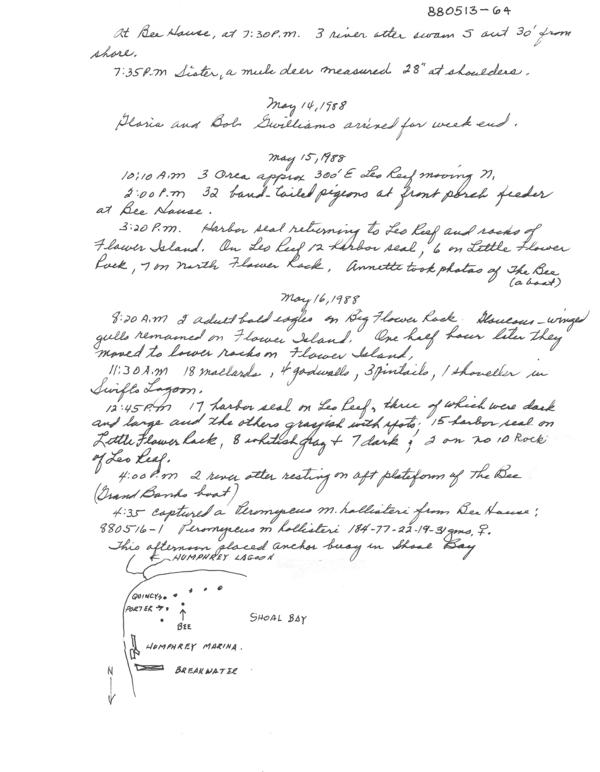 880513-64
At Bee House, at 7:30 P.M. 3 river otter swam S out 30' from
shore.
7:35 P.M Sister, a mule deer measured 28" at shoulders.
May 14, 1988
Gloria and Bob Gwilliams arrived for week end.
May 15, 1988
10:10 A.M 3 Orca approx 300' E Leo Reef moving N,
2:00 P.M 32 band-tailed pigeons at front porch feeder
at Bee House.
3:20 P.M. Harbor seal returning to Leo Reef and rocks of
Flower Island. On Leo Reef 12 harbor seal, 6 on Little Flower
Rock, 7 on North Flower Rock. Annette took photos of The Bee
(a boat)
May 16, 1988
8:20 A.M 2 adult bald eagles on Big Flower Rock. Glaucous-winged
gulls remained on Flower Island. One half hour later they
moved to lower rocks on Flower Island,
11:30 A.M 18 mallards, 4 gadwalls, 3 pintails, 1 shoveller in
Swifts Lagoon.
12:45 P.M 17 harbor seal on Leo Reef, three of which were dark
and large and the others grayish with spots; 15 harbor seal on
Little Flower Rock, 8 whitish gray + 7 dark; 2 on No 10 Rock
of Leo Reef.
4:00 P.M 2 river otter resting on aft plateform of The Bee
(Grand Banks boat)
4:35 captured a Peromyscus m. hollisteri from Bee House;
880516-1 Peromyscus m hollisteri 184-77-22-19-31 gms, ♀.
This afternoon placed anchor buoy in Shoal Bay
HUMPHREY LAGOON
QUINCY
PORTER
BEE
SHOAL BAY
HUMPHREY MARINA.
BREAKWATER
N